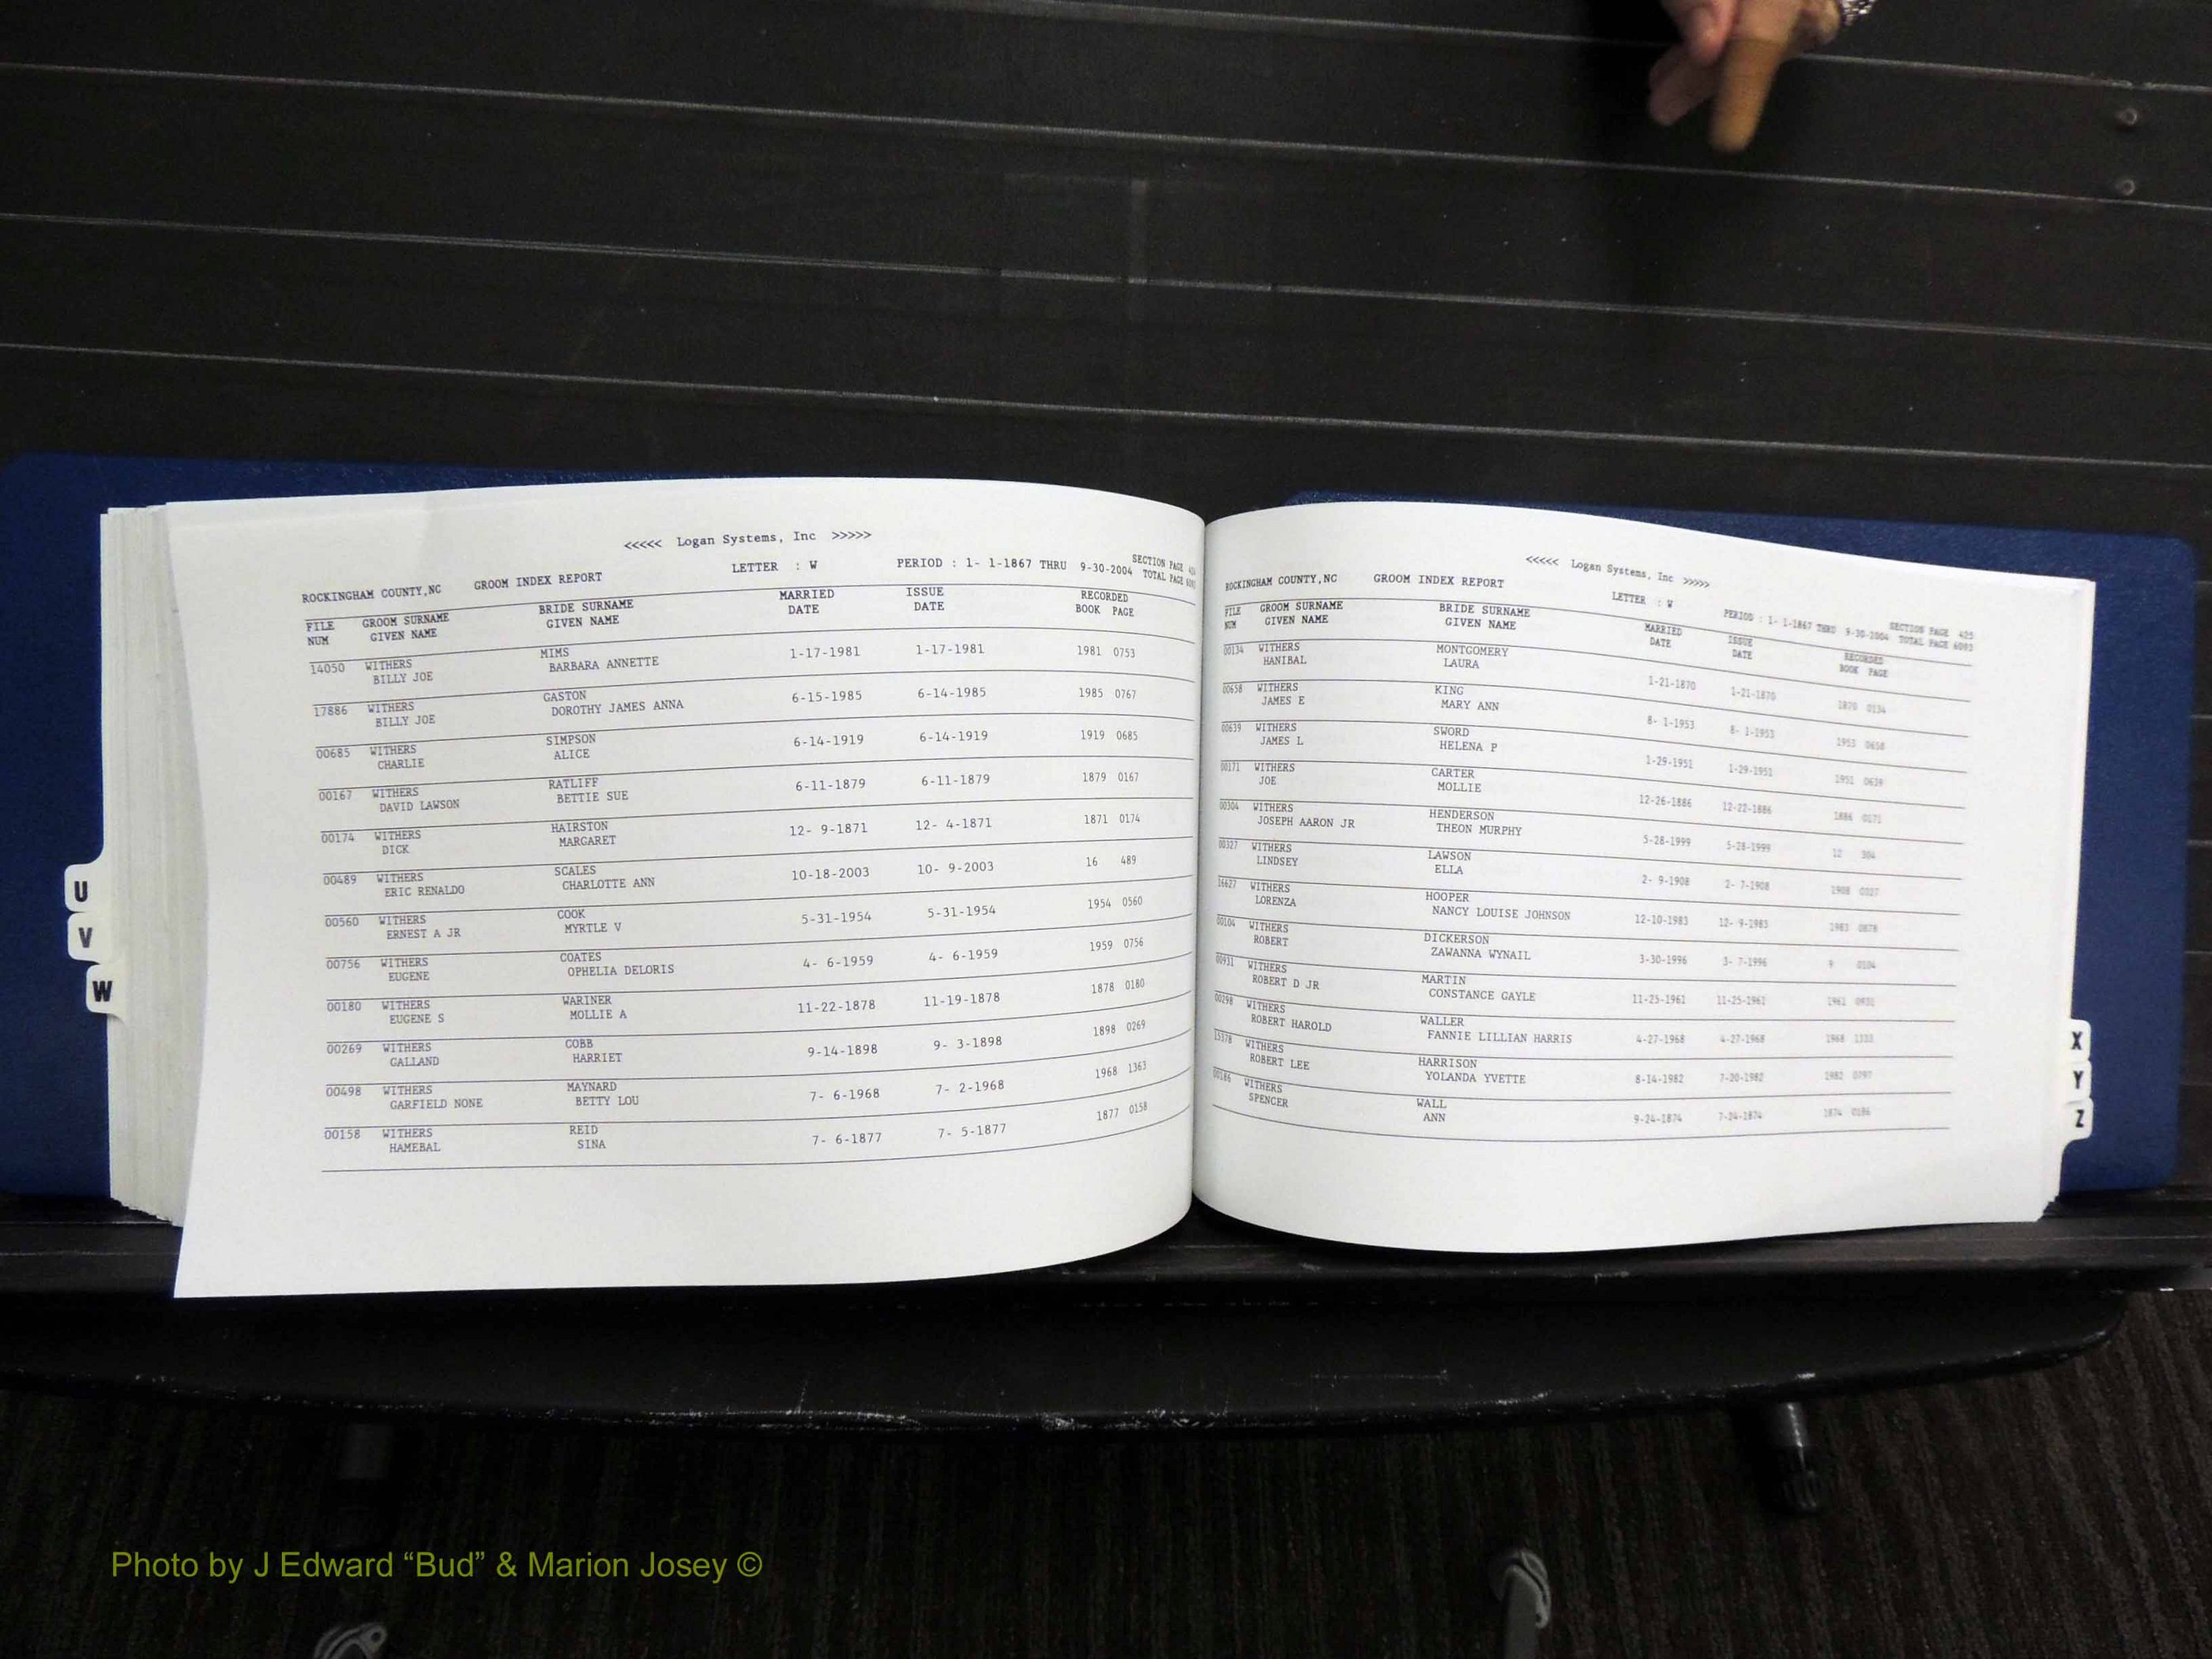 <<<<< Logan Systems, Inc >>>>>
ROCKINGHAM COUNTY,NC GROOM INDEX REPORT LETTER : W PERIOD : 1- 1-1867 THRU 9-30-2004 SECTION PAGE
TOTAL PAGE
FILE GROOM SURNAME BRIDE SURNAME MARRIED ISSUE RECORDED
NUM GIVEN NAME GIVEN NAME DATE DATE BOOK PAGE
14050 WITHERS MIMS 1-17-1981 1-17-1981 1981 0753
BILLY JOE BARBARA ANNETTE
17886 WITHERS GASTON 6-15-1985 6-14-1985 1985 0767
BILLY JOE DOROTHY JAMES ANNA
00685 WITHERS SIMPSON 6-14-1919 6-14-1919 1919 0685
CHARLIE ALICE
00167 WITHERS RATLIFF 6-11-1879 6-11-1879 1879 0167
DAVID LAWSON BETTIE SUE
00174 WITHERS HAIRSTON 12- 9-1871 12- 4-1871 1871 0174
DICK MARGARET
00489 WITHERS SCALES 10-18-2003 10- 9-2003 16 489
ERIC RENALDO CHARLOTTE ANN
00560 WITHERS COOK 5-31-1954 5-31-1954 1954 0560
ERNEST A JR MYRTLE V
00756 WITHERS COATES 4- 6-1959 4- 6-1959 1959 0756
EUGENE OPHELIA DELORIS
00180 WITHERS WARINER 11-22-1878 11-19-1878 1878 0180
EUGENE S MOLLIE A
00269 WITHERS COBB 9-14-1898 9- 3-1898 1898 0269
GALLAND HARRIET
00498 WITHERS MAYNARD 7- 6-1968 7- 2-1968 1968 1363
GARFIELD NONE BETTY LOU
00158 WITHERS REID 7- 6-1877 7- 5-1877 1877 0158
HAMEBAL SINA
U
V
W
<<<<< Logan Systems, Inc >>>>>
ROCKINGHAM COUNTY,NC GROOM INDEX REPORT LETTER : W PERIOD : 1- 1-1867 THRU 9-30-2004 SECTION PAGE 425
TOTAL PAGE 6092
FILE GROOM SURNAME BRIDE SURNAME MARRIED ISSUE RECORDED
NUM GIVEN NAME GIVEN NAME DATE DATE BOOK PAGE
00134 WITHERS MONTGOMERY 1-21-1870 1-21-1870 1870 0134
HANIBAL LAURA
00658 WITHERS KING 8- 1-1953 8- 1-1953 1953 0658
JAMES E MARY ANN
00639 WITHERS SWORD 1-29-1951 1-29-1951 1951 0639
JAMES L HELENA P
00171 WITHERS CARTER 12-26-1886 12-22-1886 1886 0171
JOE MOLLIE
00304 WITHERS HENDERSON 5-28-1999 5-28-1999 12 304
JOSEPH AARON JR THEON MURPHY
00327 WITHERS LAWSON 2- 9-1908 2- 7-1908 1908 0327
LINDSEY ELLA
16627 WITHERS HOOPER 12-10-1983 12- 9-1983 1983 0878
LORENZA NANCY LOUISE JOHNSON
00104 WITHERS DICKERSON 3-30-1996 3- 7-1996 9 0104
ROBERT ZAWANNA WYNAIL
00931 WITHERS MARTIN 11-25-1961 11-25-1961 1961 0931
ROBERT D JR CONSTANCE GAYLE
00298 WITHERS WALLER 4-27-1968 4-27-1968 1968 1333
ROBERT HAROLD FANNIE LILLIAN HARRIS
15378 WITHERS HARRISON 8-14-1982 7-20-1982 1982 0797
ROBERT LEE YOLANDA YVETTE
00186 WITHERS WALL 9-24-1874 7-24-1874 1874 0186
SPENCER ANN
X
Y
Z
Photo by J Edward “Bud” & Marion Josey ©